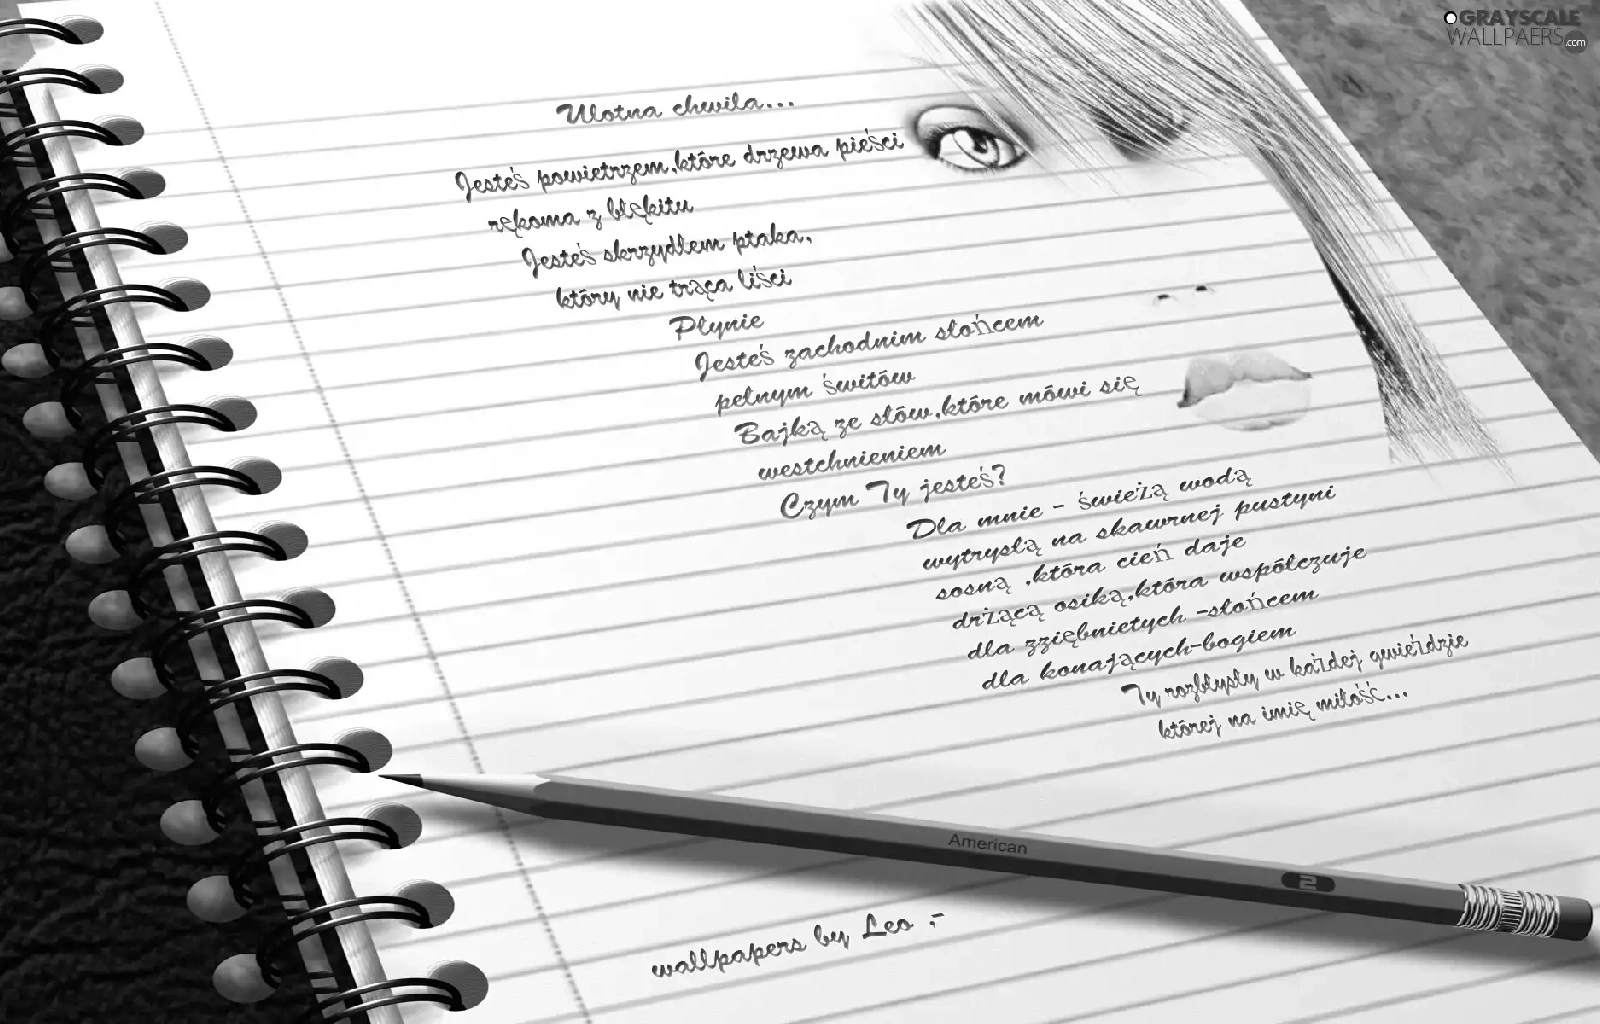 GRAYSCALE
WALLPAERS.com
Ulotna chwila...
Jesteś powietrzem,które drzewa pieści
rękoma z błękitu
Jesteś skrzydłem ptaka,
który nie trąca liści
Płynie
Jesteś zachodnim słońcem
pełnym świtów
Bajką ze słów,które mówi się
westchnieniem
Czym Ty jesteś?
Dla mnie - świeżą wodą
wytrysłą na skawrnej pustyni
sosną ,która cień daje
drżącą osiką,która współczuje
dla zziębnietych -słońcem
dla konających-bogiem
Ty rozbłysły w każdej gwieździe
której na imię miłość...
American
2
wallpapers by Leo ;-